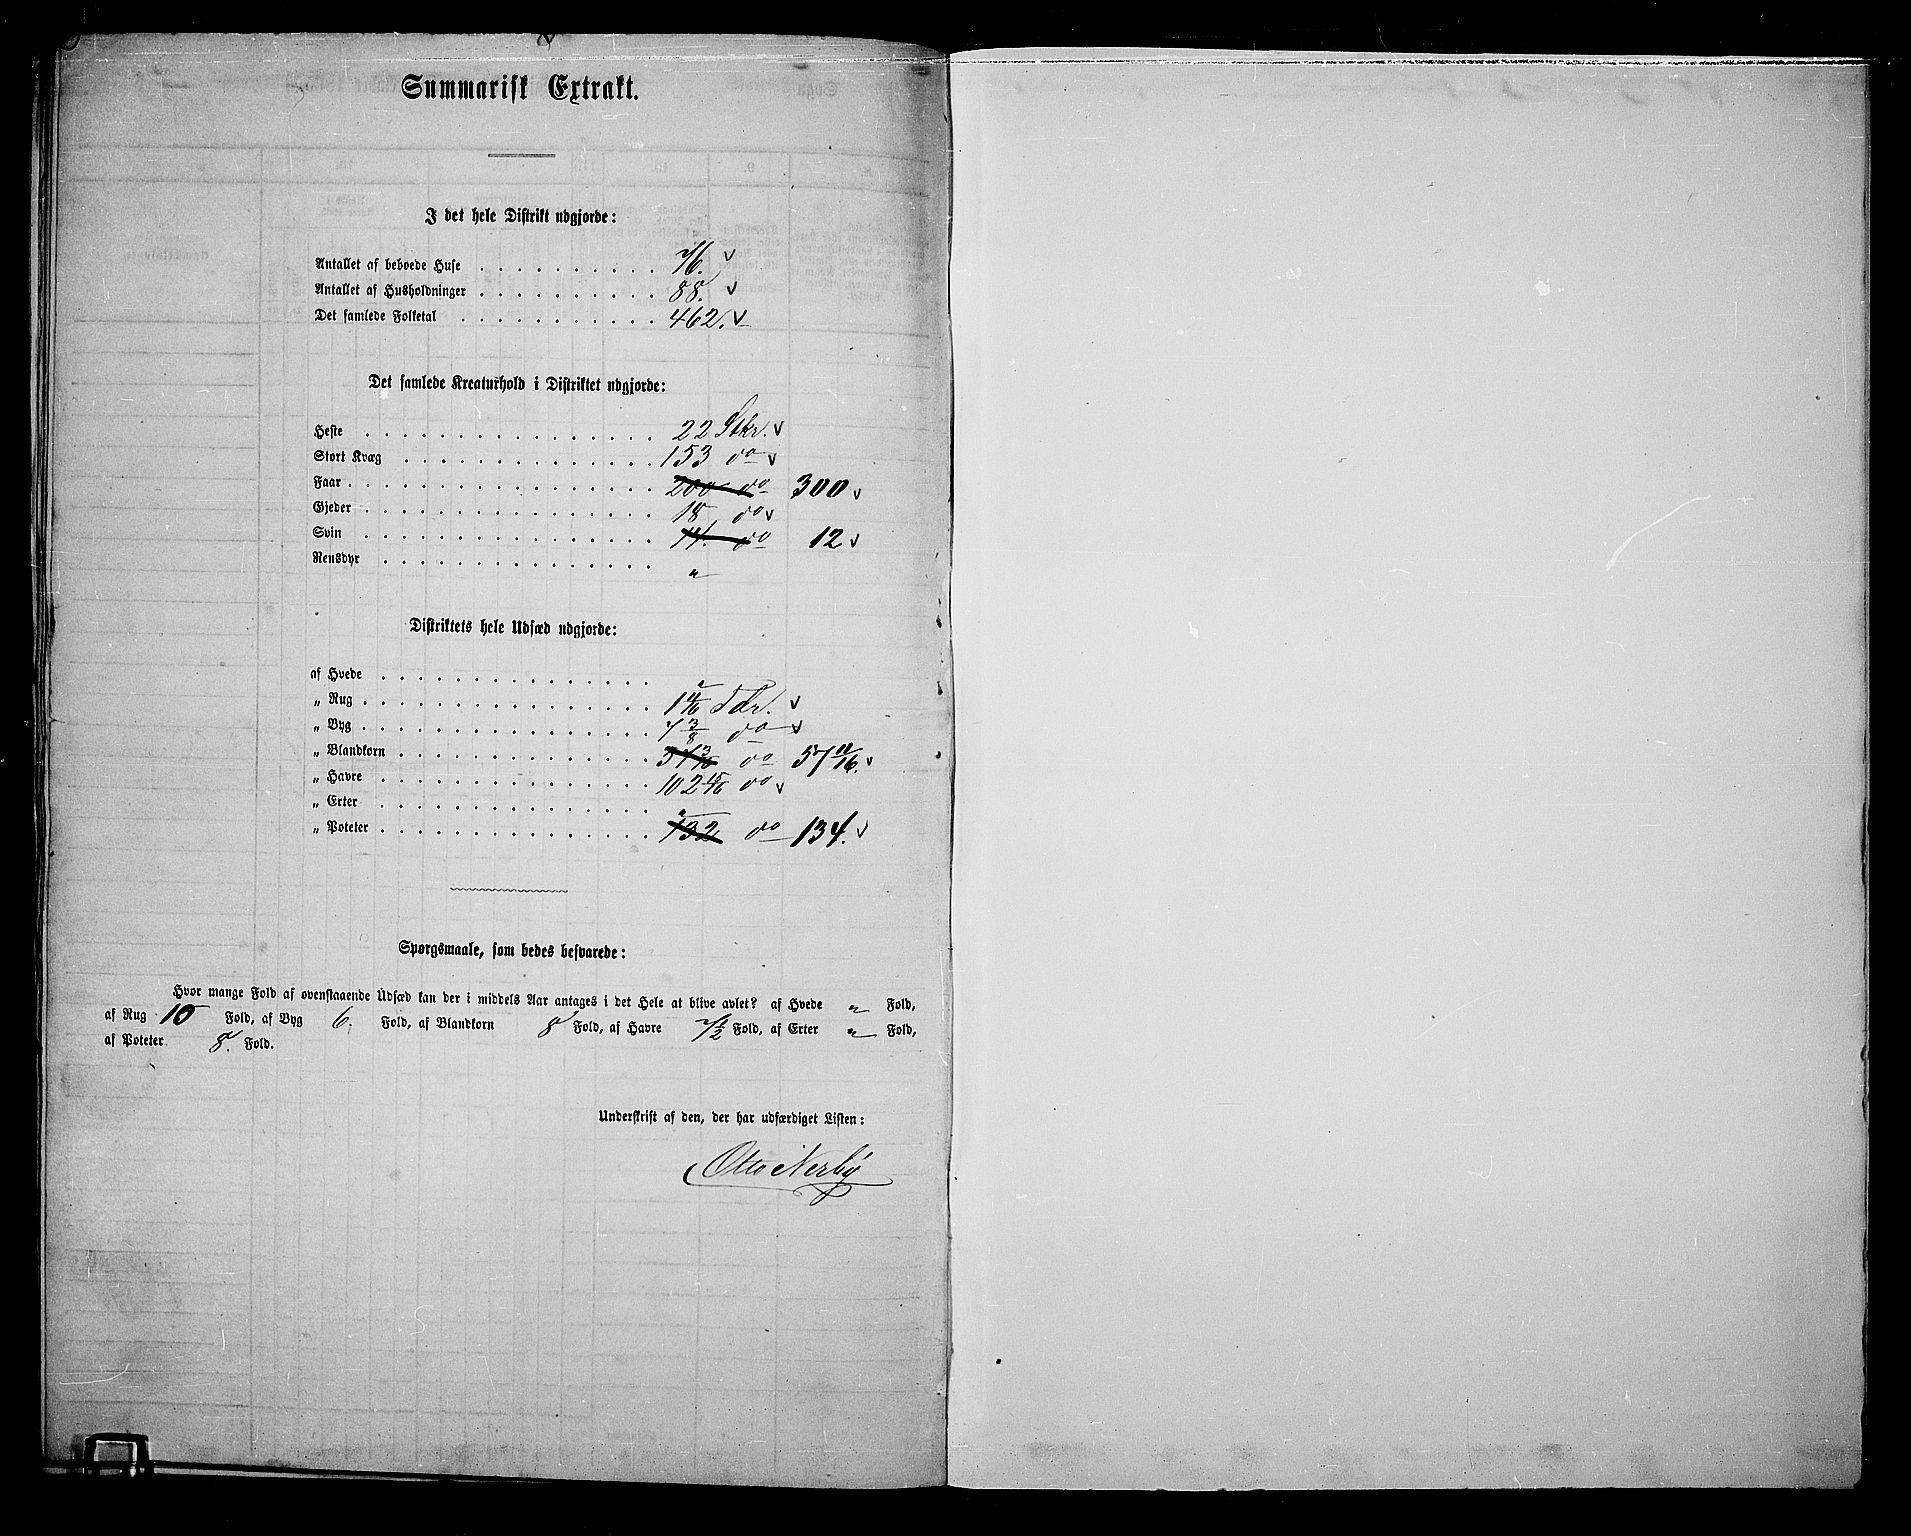 Summarisk Extrakt.
I det hele Distrikt udgjorde:
Antallet af beboede Huse . . . . . . . . . . 76.
Antallet af Husholdninger . . . . . . . . . . 88.
Det samlede Folketal . . . . . . . . . . . 462.
Det samlede Kreaturhold i Distriktet udgjorde:
Heste . . . . . . . . . . . . . . . . 22 Stkr.
Stort Kvæg . . . . . . . . . . . . . . 153 do
Faar . . . . . . . . . . . . . . . . . 200 do 300
Gjeder . . . . . . . . . . . . . . . . 18 do
Svin . . . . . . . . . . . . . . . . 11. do 12
Rensdyr . . . . . . . . . . . . . . . "
Distriktets hele Udsæd udgjorde:
af Hvede . . . . . . . . . . . . . . . "
„ Rug . . . . . . . . . . . . . . . . Tdr.
„ Byg . . . . . . . . . . . . . . . . 7 3/8 do
„ Blandkorn . . . . . . . . . . . . . do 57 11/16.
„ Havre . . . . . . . . . . . . . . . 102 15/16 do
„ Erter . . . . . . . . . . . . . . . "
„ Poteter . . . . . . . . . . . . . . . 132 do 134.
Spørgsmaale, som bedes besvarede:
Hvor mange Fold af ovenstaaende Udsæd kan der i middels Aar antages i det Hele at blive avlet? af Hvede " Fold,
af Rug 10 Fold, af Byg 6. Fold, af Blandkorn 8 Fold, af Havre 7 1/2 Fold, af Erter " Fold,
af Poteter 8. Fold.
Underskrift af den, der har udfærdiget Listen:
Otto Nerby